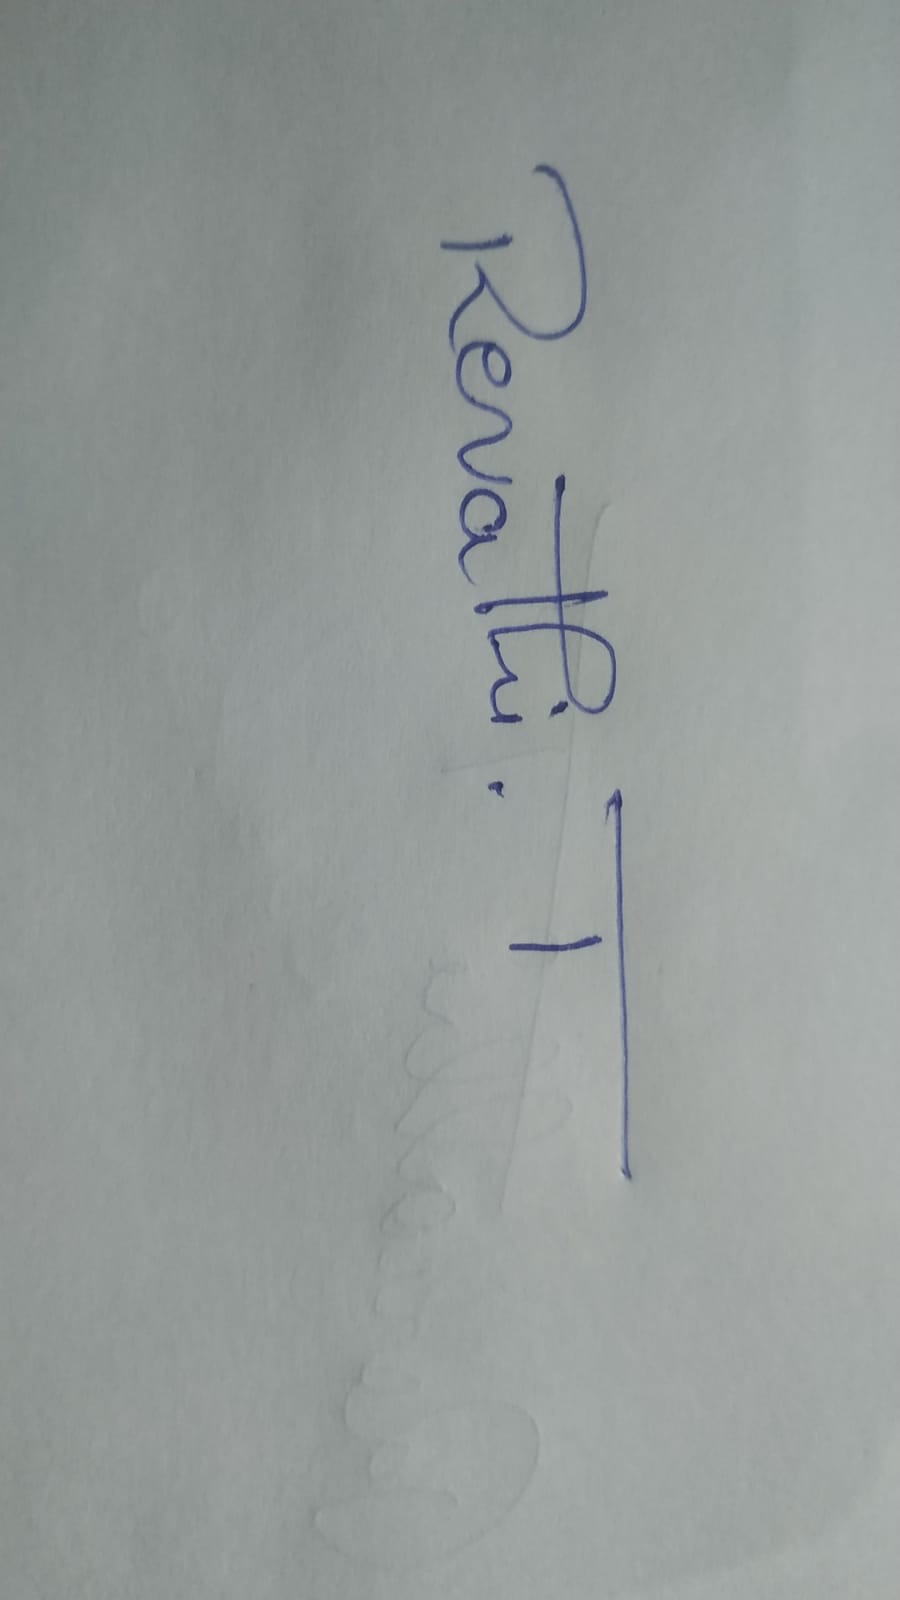 Revathi. T